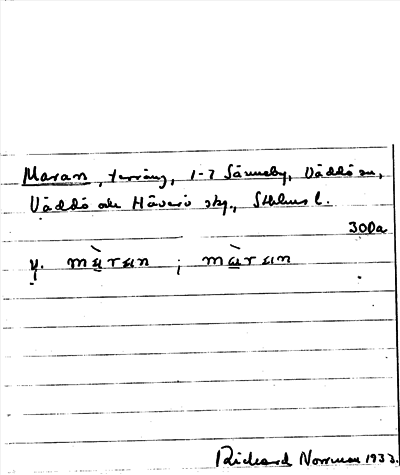 Maran, terräng, 1-7 Sänneby, Väddö sn,
Väddö och Häverö skg., Sthlms l.
300a
y. mɑ̀ran ; mɑ̀ran
Richard Norrman 1933.